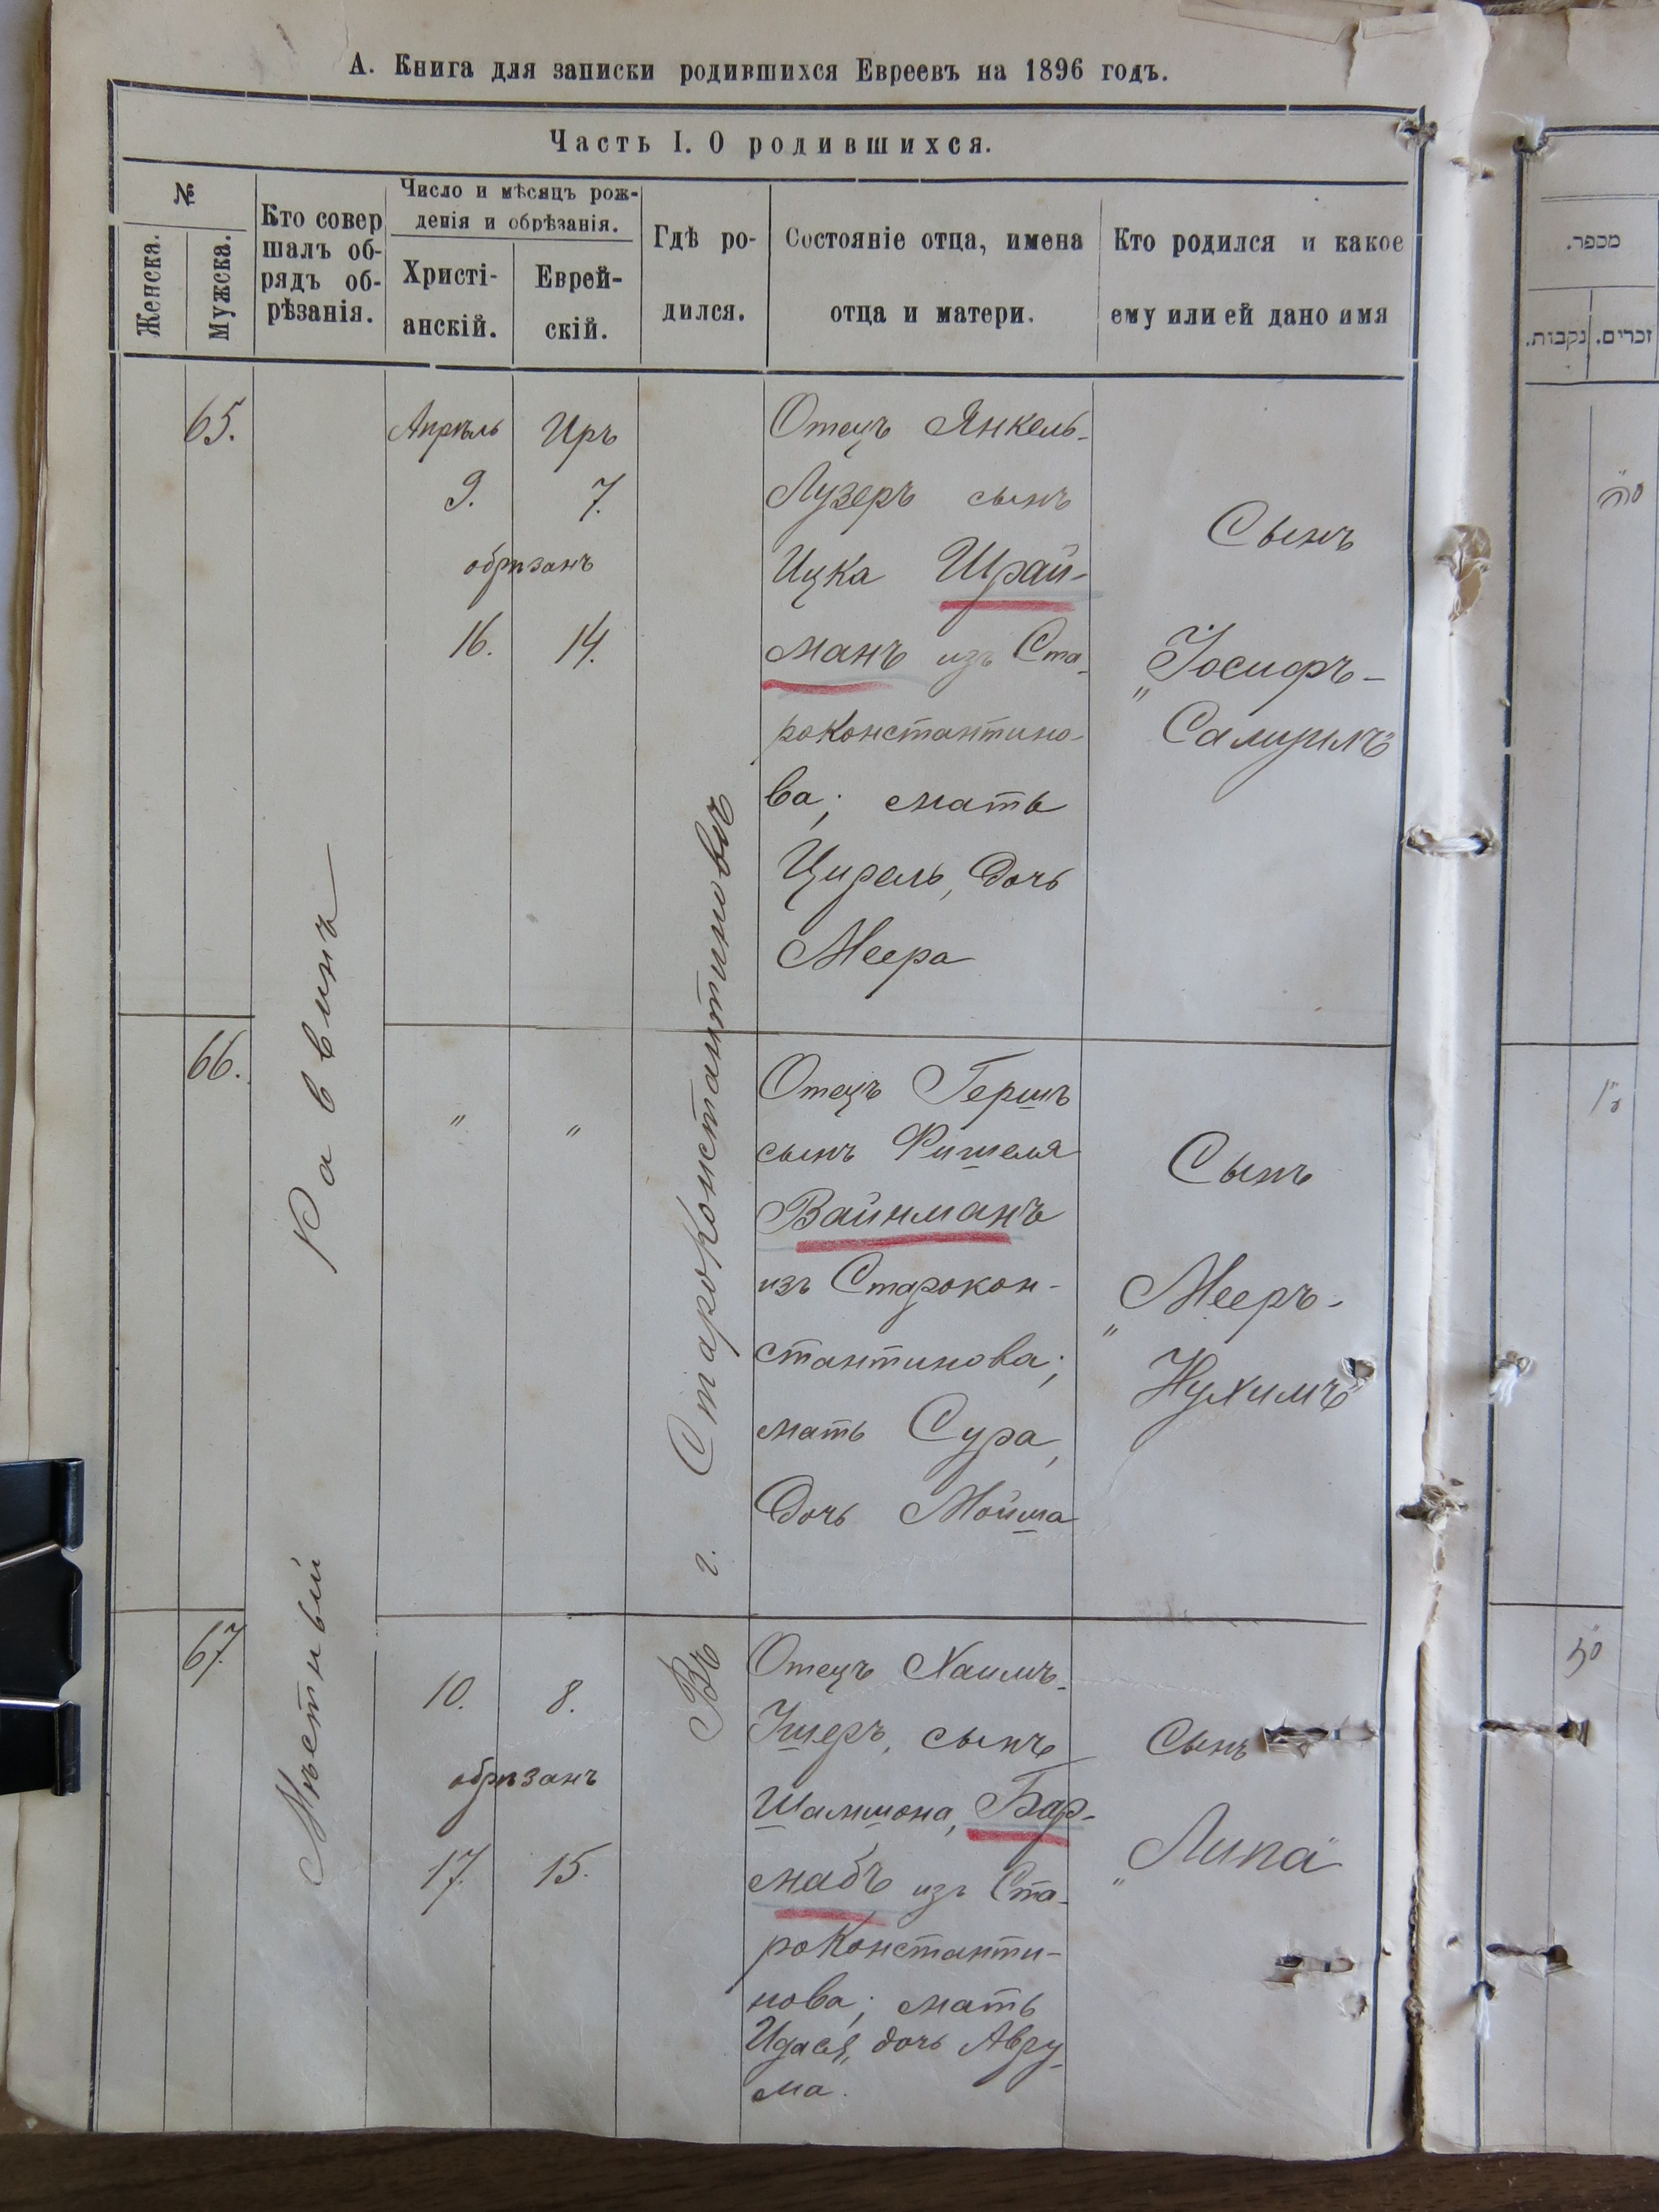 А. Книга для записки родившихся Евреевъ на 1896 годъ.
Часть I. О родившихся.
№
Женска.
Мужска.
Кто совер
шалъ об-
рядъ об-
рѣзанія.
Число и мѣсяцъ рож-
денія и обрѣзанія.
Христі-
анскій.
Еврей-
скій.
Гдѣ ро-
дился.
Состояніе отца, имена
отца и матери.
Кто родился и какое
ему или ей дано имя
Мѣстный Раввинъ
Въ г. Староконстантиновѣ
65.
Апрѣль
Иръ
9.
7.
обрѣзанъ
16.
14.
Отецъ Янкель-
Лузеръ сынъ
Ицка Шрай-
манъ изъ Ста-
роконстантино-
ва; мать
Цирель, дочь
Меера
Сынъ
„Іосифъ-
Самуилъ“
66.
"
"
Отецъ Гершъ
сынъ Фишеля
Вайнманъ
изъ Старокон-
стантинова;
мать Сура,
дочь Мойша
Сынъ
„Мееръ-
Нухимъ“
67.
10.
8.
обрѣзанъ
17.
15.
Отецъ Хаимъ-
Ушеръ, сынъ
Шамшона, Бар-
мабъ изъ Ста-
роконстанти-
нова; мать
Идася, дочь Авру-
ма.
Сынъ
„Липа“
מספר.
זכרים.
נקבות.
ס״ה
ס״ו
ס״ז